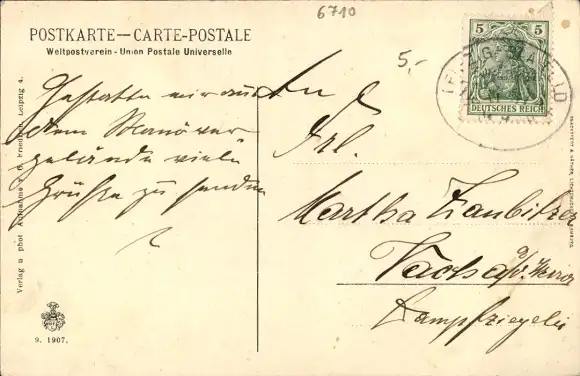 6710
POSTKARTE—CARTE-POSTALE
Weltpostverein - Union Postale Universelle
5,-
5 5
DEUTSCHES REICH
Gestatte mir aus
dem Manöver
gelände viele
Grüße zu senden
An
Frl.
Martha Zaubitzer
Vacha a/d. Werra
Dampfziegelei
Verlag u phot Aufnahme v. G. Friedrich, Leipzig 4.
9. 1907.